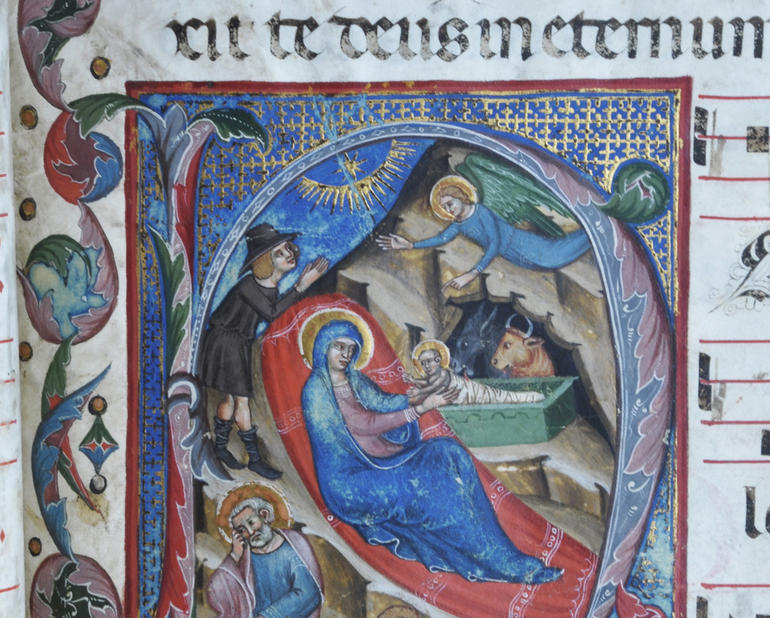 xit te deus in eternum